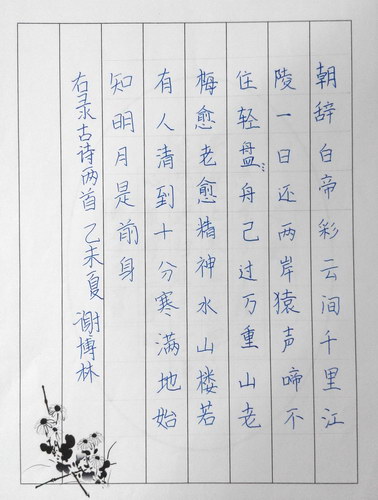 朝辞白帝彩云间千里江
陵一日还两岸猿声啼不
住轻盘舟己过万重山老
梅愈老愈精神水山楼若
有人清到十分寒满地始
知明月是前身
右录古诗两首乙未夏谢博林